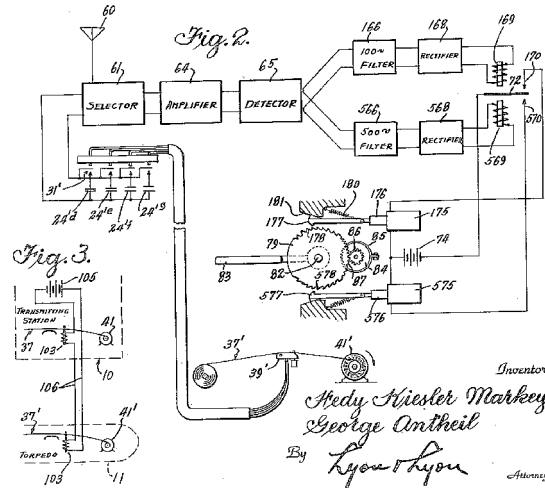 60
Fig. 2.
61
SELECTOR
64
AMPLIFIER
65
DETECTOR
166
100~
FILTER
168
RECTIFIER
169
170
72
570
566
500~
FILTER
568
RECTIFIER
569
31'
24'd
24'e
24'f
24'g
181
180
176
177
175
79
178
86
85
74
83
82
84
87
578
577
576
575
Fig. 3.
105
TRANSMITTING
STATION
41
37
103
10
106
37'
41'
TORPEDO
103
11
37'
39'
41'
Inventor
Hedy Kiesler Markey
George Antheil
By
Lyon & Lyon
Attorney